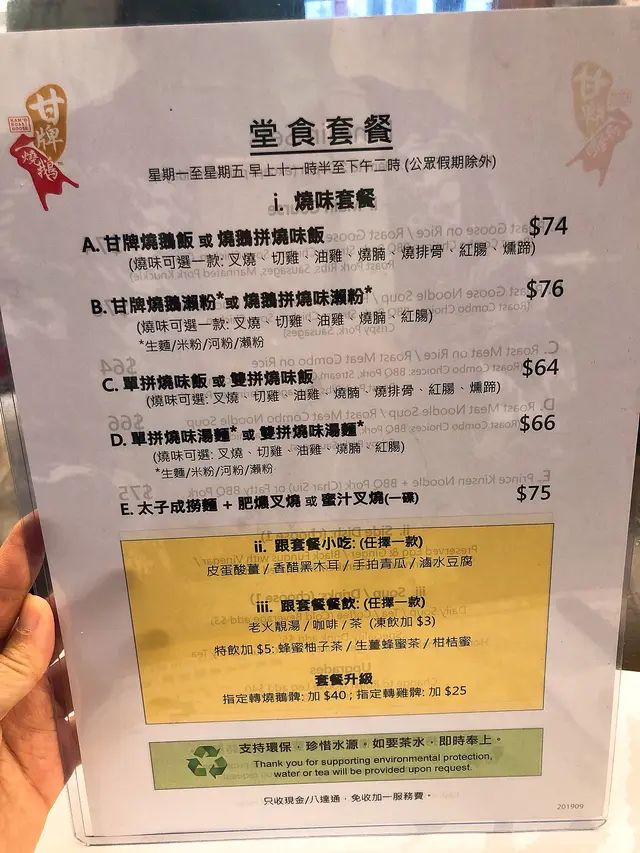 甘牌
燒鵝
KAM'S
ROAST
GOOSE
堂食套餐
星期一至星期五 早上十一時半至下午二時 (公眾假期除外)
i. 燒味套餐
A. 甘牌燒鵝飯 或 燒鵝拼燒味飯 $74
(燒味可選一款: 叉燒、切雞、油雞、燒腩、燒排骨、紅腸、燻蹄)
B. 甘牌燒鵝瀨粉*或 燒鵝拼燒味瀨粉* $76
(燒味可選一款: 叉燒、切雞、油雞、燒腩、紅腸)
*生麵/米粉/河粉/瀨粉
C. 單拼燒味飯 或 雙拼燒味飯 $64
(燒味可選: 叉燒、切雞、油雞、燒腩、燒排骨、紅腸、燻蹄)
D. 單拼燒味湯麵* 或 雙拼燒味湯麵* $66
(燒味可選: 叉燒、切雞、油雞、燒腩、紅腸)
*生麵/米粉/河粉/瀨粉
E. 太子成撈麵 + 肥燶叉燒 或 蜜汁叉燒(一碟) $75
ii. 跟套餐小吃: (任擇一款)
皮蛋酸薑 / 香醋黑木耳 / 手拍青瓜 / 滷水豆腐
iii. 跟套餐餐飲: (任擇一款)
老火靚湯 / 咖啡 / 茶 (凍飲加 $3)
特飲加 $5: 蜂蜜柚子茶 / 生薑蜂蜜茶 / 柑桔蜜
套餐升級
指定轉燒鵝髀: 加 $40 ; 指定轉雞髀: 加 $25
支持環保，珍惜水源，如要茶水，即時奉上。
Thank you for supporting environmental protection,
water or tea will be provided upon request.
只收現金/八達通，免收加一服務費。
201909